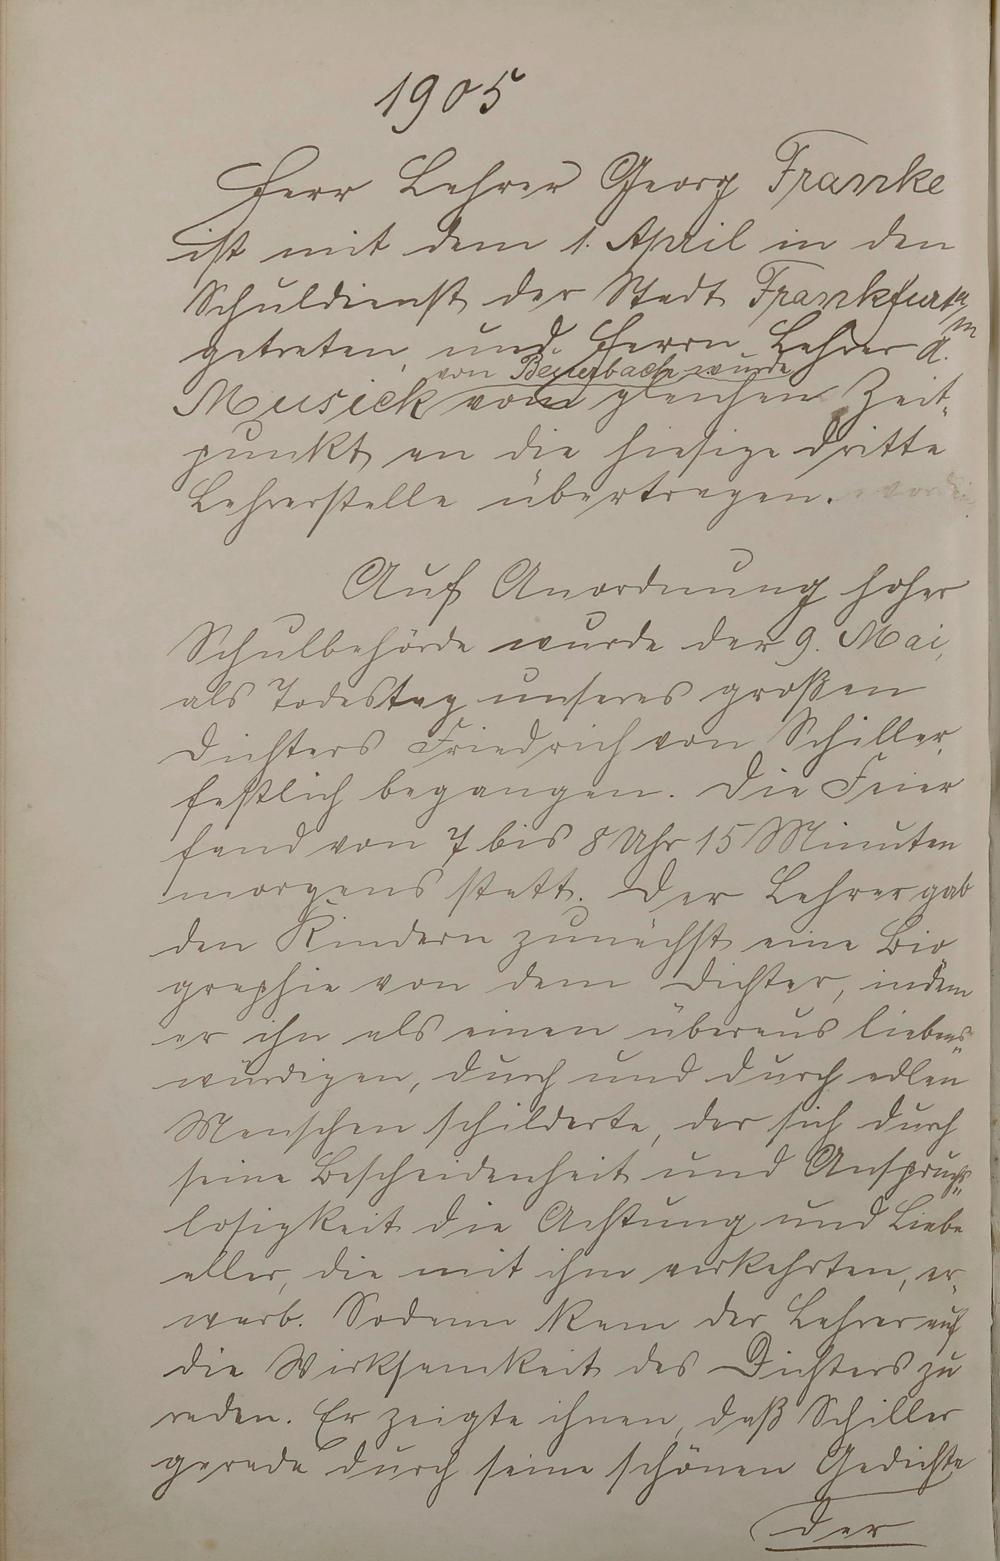 1905
Herr Lehrer Georg Franke
ist mit dem 1. April in den
Schuldienst der Stadt Frankfurt a/m
getreten, und Herrn Lehrer A.
von Beuerbach wurde
Musick vom gleichen Zeit-
punkt an die hiesige dritte
Lehrerstelle übertragen.
Auf Anordnung hoher
Schulbehörde wurde der 9. Mai,
als Todestag unseres großen
Dichters Friedrich von Schiller,
festlich begangen. Die Feier
fand von 7 bis 8 Uhr 15 Minuten
morgens statt. Der Lehrer gab
den Kindern zunächst eine Bio
graphie von dem Dichter, indem
er ihn als einen überaus liebens-
würdigen, durch und durch edlen
Menschen schilderte, der sich durch
seine Bescheidenheit und Anspruchs-
losigkeit die Achtung und Liebe
aller, die mit ihm verkehrten, er-
warb. Sodann kam der Lehrer auf
die Wirksamkeit des Dichters zu
reden. Er zeigte ihnen, daß Schiller
gerade durch seine schönen Gedichte
der